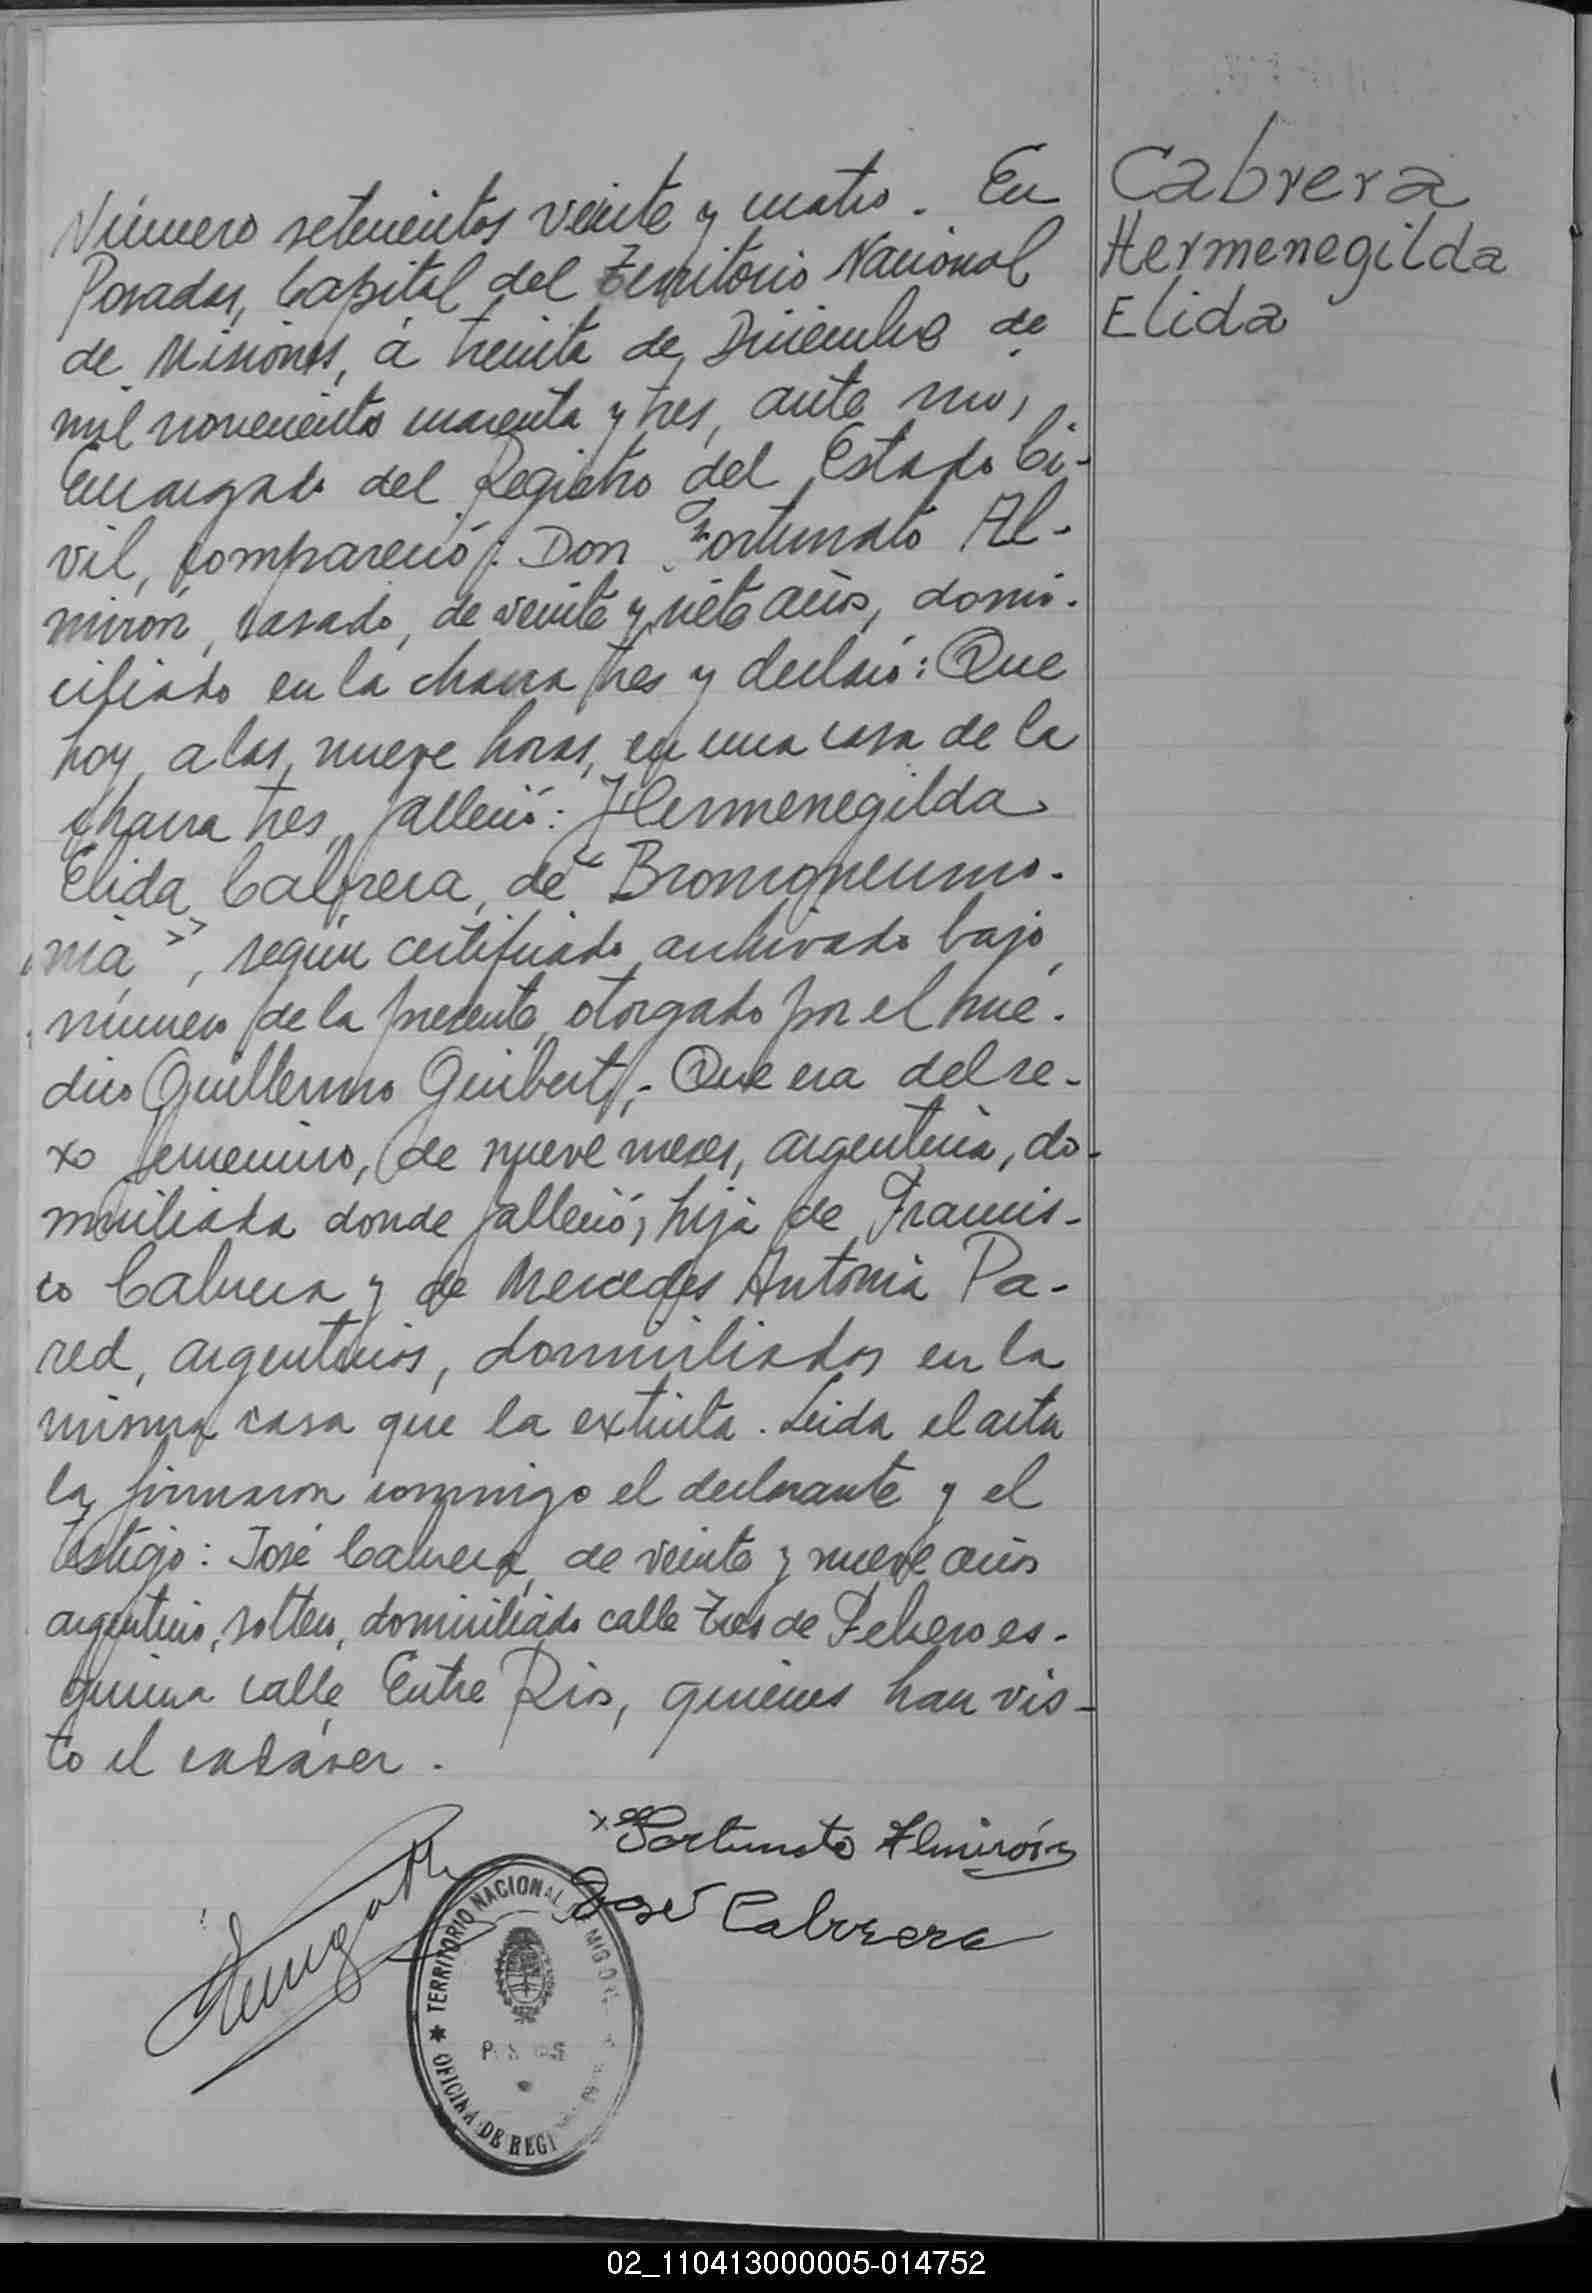 Número setecientos veinte y cuatro. En
Posadas, Capital del Territorio Nacional
de Misiones, á treinta de Diciembre de
mil novecientos cuarenta y tres, ante mi,
Encargado del Registro del Estado Ci-
vil, compareció: Don Fortunato Al-
mirón, casado, de veinte y siete años, domi-
ciliado en la chacra tres y declaró: Que
hoy, a las nueve horas, en una casa de la
chacra tres, falleció: Hermenegilda
Elida Cabrera, de "Bronconeumo-
nia", según certificado archivado bajo
número de la presente, otorgado por el mé-
dico Guillermo Guibert,- Que era del se-
xo femenino, de nueve meses, argentina, do-
miciliada donde falleció; hija de Francis-
co Cabrera y de Mercedes Antonia Pa-
red, argentinos, domiciliados en la
misma casa que la extinta. Leida el acta
la firmaron conmigo el declarante y el
testigo: José Cabrera, de veinte y nueve años
argentino, soltero, domiciliado calle Tres de Febrero es-
quina calle Entre Rios, quienes han vis-
to el cadáver.
Fortunato Almirón
José Cabrera
TERRITORIO NACIONAL DE MISIONES
OFICINA DE REGI
Cabrera
Hermenegilda
Elida
02_110413000005-014752